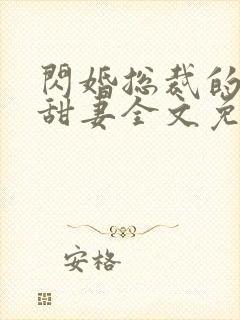 閃婚总裁的
甜妻全文免
安格